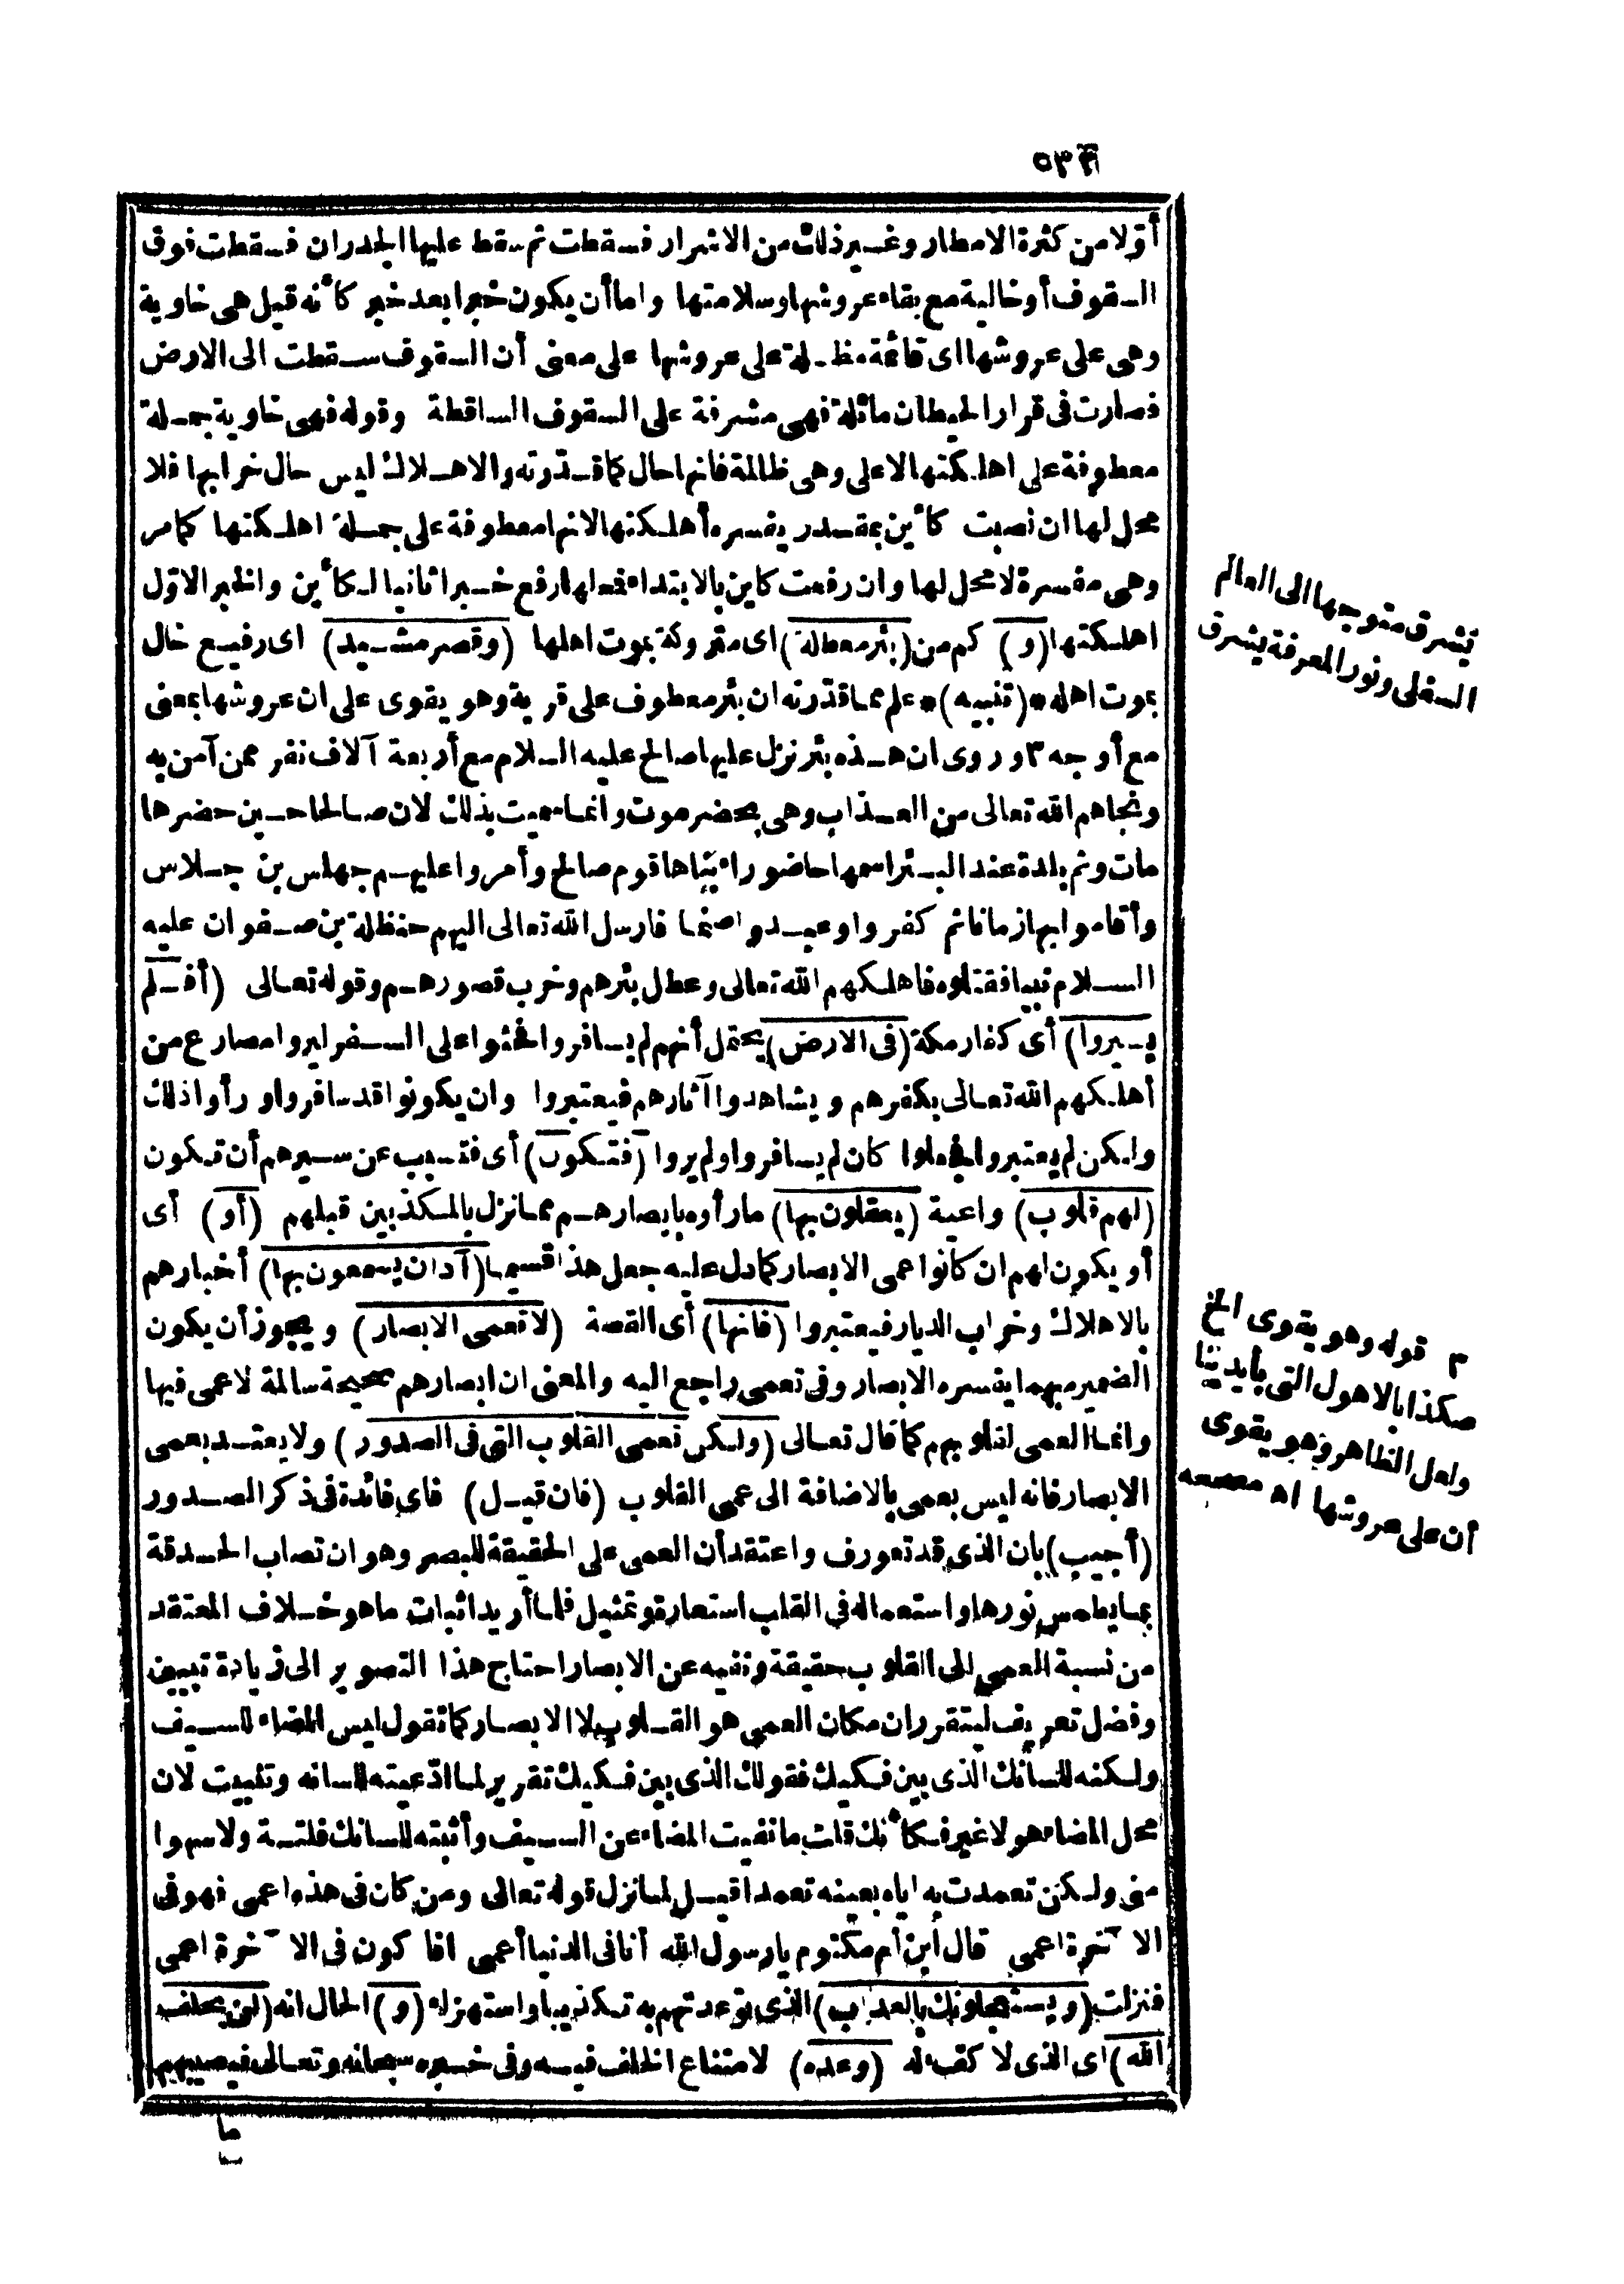 ٥٣٤
أوّلا من كثرة الامطار وغير ذلك من الاشرار فسقطت ثم سقط عليها الجدران فسقطت فوق
السقوف أو خالية مع بقاء عروشها وسلامتها واما أن يكون خبرا بعد خبر كأنه قيل هى خاوية
وهى على عروشها اى قائمة مظلة على عروشها على معنى أن السقوف سقطت الى الارض
فصارت فى قرار الحيطان ماثلة فهى مشرفة على السقوف الساقطة وقوله فهى خاوية جملة
معطوفة على اهلكتها لا على وهى ظالمة فانها حال كما قدّرته والاهلاك ليس حال خرابها فلا
محل لها ان نصبت كأين بمقدر يفسره أهلكتها لانها معطوفة على جملة اهلكتها كما مر
وهى مفسرة لا محل لها وان رفعت كاين بالابتداء فمحلها رفع خبرا ثانيا لكأين والخبر الاوّل
اهلكتها (و) كم من (بئر معطلة) اى متروكة بموت اهلها (وقصر مشيد) اى رفيع خال
بموت اهله * (تنبيه) * علم مما قدّرته ان بئر معطوف على قرية وهو يقوى على ان عروشها بمعنى
مع أوجه ٣ وروى ان هذه بئر نزل عليها صالح عليه السلام مع أربعة آلاف نفر ممن آمن به
ونجاهم الله تعالى من العذاب وهى بحضرموت وانما سميت بذلك لان صالحا حين حضرها
مات وثم بلدة عند البئر اسمها حاضوراء بناها قوم صالح وأمروا عليهم جهلس بن جلاس
وأقاموا بها زمانا ثم كفروا وعبدوا صنما فارسل الله تعالى اليهم حنظلة بن صفوان عليه
السلام نبيا فقتلوه فاهلكهم الله تعالى وعطل بئرهم وخرب قصورهم وقوله تعالى (أفلم
يسيروا) أى كفار مكة (فى الارض) يحتمل أنهم لم يسافروا فحثوا على السفر ليروا مصارع من
أهلكهم الله تعالى بكفرهم ويشاهدوا آثارهم فيعتبروا وان يكونوا قد سافروا ورأوا ذلك
ولكن لم يعتبروا فجعلوا كان لم يسافروا ولم يروا (فتكون) أى فتسبب عن سيرهم أن تكون
(لهم قلوب) واعية (يعقلون بها) ما رأوه بابصارهم مما نزل بالمكذبين قبلهم (أو) أى
أو يكون لهم ان كانوا عمى الابصار كما دل عليه جعل هذا قسيما (آذان يسمعون بها) أخبارهم
بالاهلاك وخراب الديار فيعتبروا (فانها) أى القصة (لا تعمى الابصار) ويجوز أن يكون
الضمير مبهما يفسره الابصار وفى تعمى راجع اليه والمعنى ان ابصارهم صحيحة سالمة لا عمى فيها
وانما العمى لقلوبهم كما قال تعالى (ولكن تعمى القلوب التى فى الصدور) ولا يعتد بعمى
الابصار فانه ليس بعمى بالاضافة الى عمى القلوب (فان قيل) فاى فائدة فى ذكر الصدور
(أجيب) بان الذى قد تعورف واعتقد أن العمى على الحقيقة للبصر وهو ان تصاب الحدقة
بما يطمس نورها واستعماله فى القلب استعارة وتمثيل فلما أريد اثبات ما هو خلاف المعتقد
من نسبة العمى الى القلوب حقيقة ونفيه عن الابصار احتاج هذا التصوير الى زيادة تبيين
وفضل تعريف ليتقرر ان مكان العمى هو القلوب لا الابصار كما تقول ليس المضاء للسيف
ولكنه للسانك الذى بين فكيك فقولك الذى بين فكيك تقرير لما ادّعيته للسانه وتثبيت لان
محل المضاء هو لا غير فكأنك قلت ما نفيت المضاء عن السيف وأثبته للسانك فلتة ولا سهوا
منى ولكن تعمدت به اياه بعينه تعمدا قيل لما نزل قوله تعالى ومن كان فى هذه اعمى فهو فى
الآخرة اعمى قال ابن أم مكتوم يا رسول الله أنا فى الدنيا أعمى افا كون فى الآخرة اعمى
فنزلت (ويستعجلونك بالعذاب) الذى توعدتهم به تكذيبا واستهزاء (و) الحال انه (لن يخلف
الله) اى الذى لا كفء له (وعده) لامتناع الخلف فيه وفى خبره سبحانه وتعالى فيصيبهم
ما
تشرق متوجها الى العالم
السفلى ونور المعرفة يشرق
٣ قوله وهو يقوى الخ
هكذا بالاصول التى بأيدينا
ولعل الظاهر وهو يقوى
أن على عروشها اه مصححه